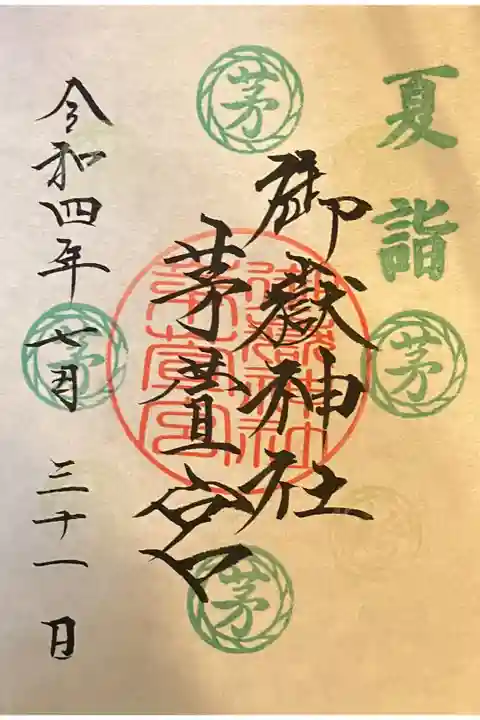 夏詣
御嶽神社
茅萱宮
令和四年七月三十一日
茅
茅
茅
茅